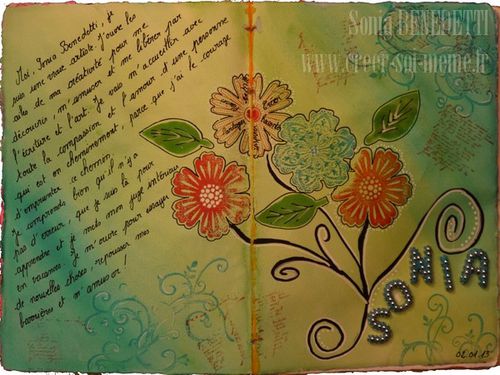 Moi, Sonia Benedetti, je
suis une vraie artiste. J'ouvre les
ailes de ma créativité pour me
découvrir, m'amuser et me libérer par
l'écriture et l'art. Je vais m'accueillir avec
toute la compassion et l'amour d'une personne
qui est en cheminement, parce que j'ai le courage
d'emprunter ce chemin.
Je comprends bien qu'il n'y a
pas d'erreur que je suis là pour
apprendre et je mets mon juge intérieur
en vacances. Je m'ouvre pour essayer
de nouvelles choses, repousser mes
barrières et m'amuser !
Sonia BENEDETTI
www.creer-soi-meme.fr
SONIA
02.01.13